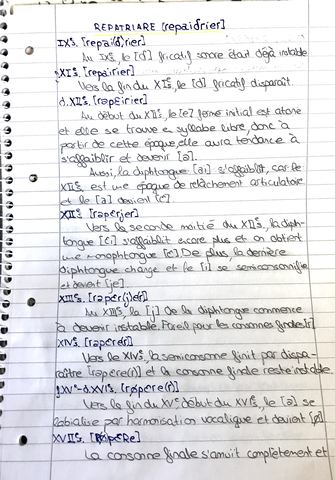 REPATRIARE [repaiđrier]
IXᵉS. [repai(đ)rier]
Au IXᵉS, le [đ] fricatif sonore était déjà instable.
XIᵉS. [repairier]
Vers la fin du XIᵉS, le [đ] fricatif disparaît.
d.XIIᵉS. [repeirier]
Au début du XIIᵉS, le [e] fermé initial est atone
et elle se trouve e syllabe libre, donc à
partir de cette époque, elle aura tendance à
s'affaiblir et devenir [ə].
Aussi, la diphtongue [ai] s'affaiblit, car le
XIIᵉS. est une époque de relâchement articulatoire
et le [a] devient [ɛ].
XIIᵉS. [rəpɛrjer]
Vers la seconde moitié du XIIᵉS, la diph-
tongue [ɛi] s'affaiblit encore plus et on obtient
une monophtongue [ɛ]. De plus, la dernière
diphtongue change et le [i] se semiconsonnifie
et devient [je]
XIIIᵉS. [rəpɛr(j)er]
Au XIIIᵉS, la [j] de la diphtongue commence
à devenir instable. Pareil pour les consonnes finales. [r]
XIVᵉS. [rəpɛre(r)]
Vers le XIVᵉS, la semiconsonne finit par dispa-
raître [rəpɛre(r)] et la consonne finale reste instable.
f.XVᵉ-d.XVIᵉS. [røpɛre(r)]
Vers la fin du XVᵉ, début du XVIᵉS, le [ə] se
labialise par harmonisation vocalique et devient [ø]
XVIIᵉS. [RøpɛRe]
La consonne finale s'amuït complètement et